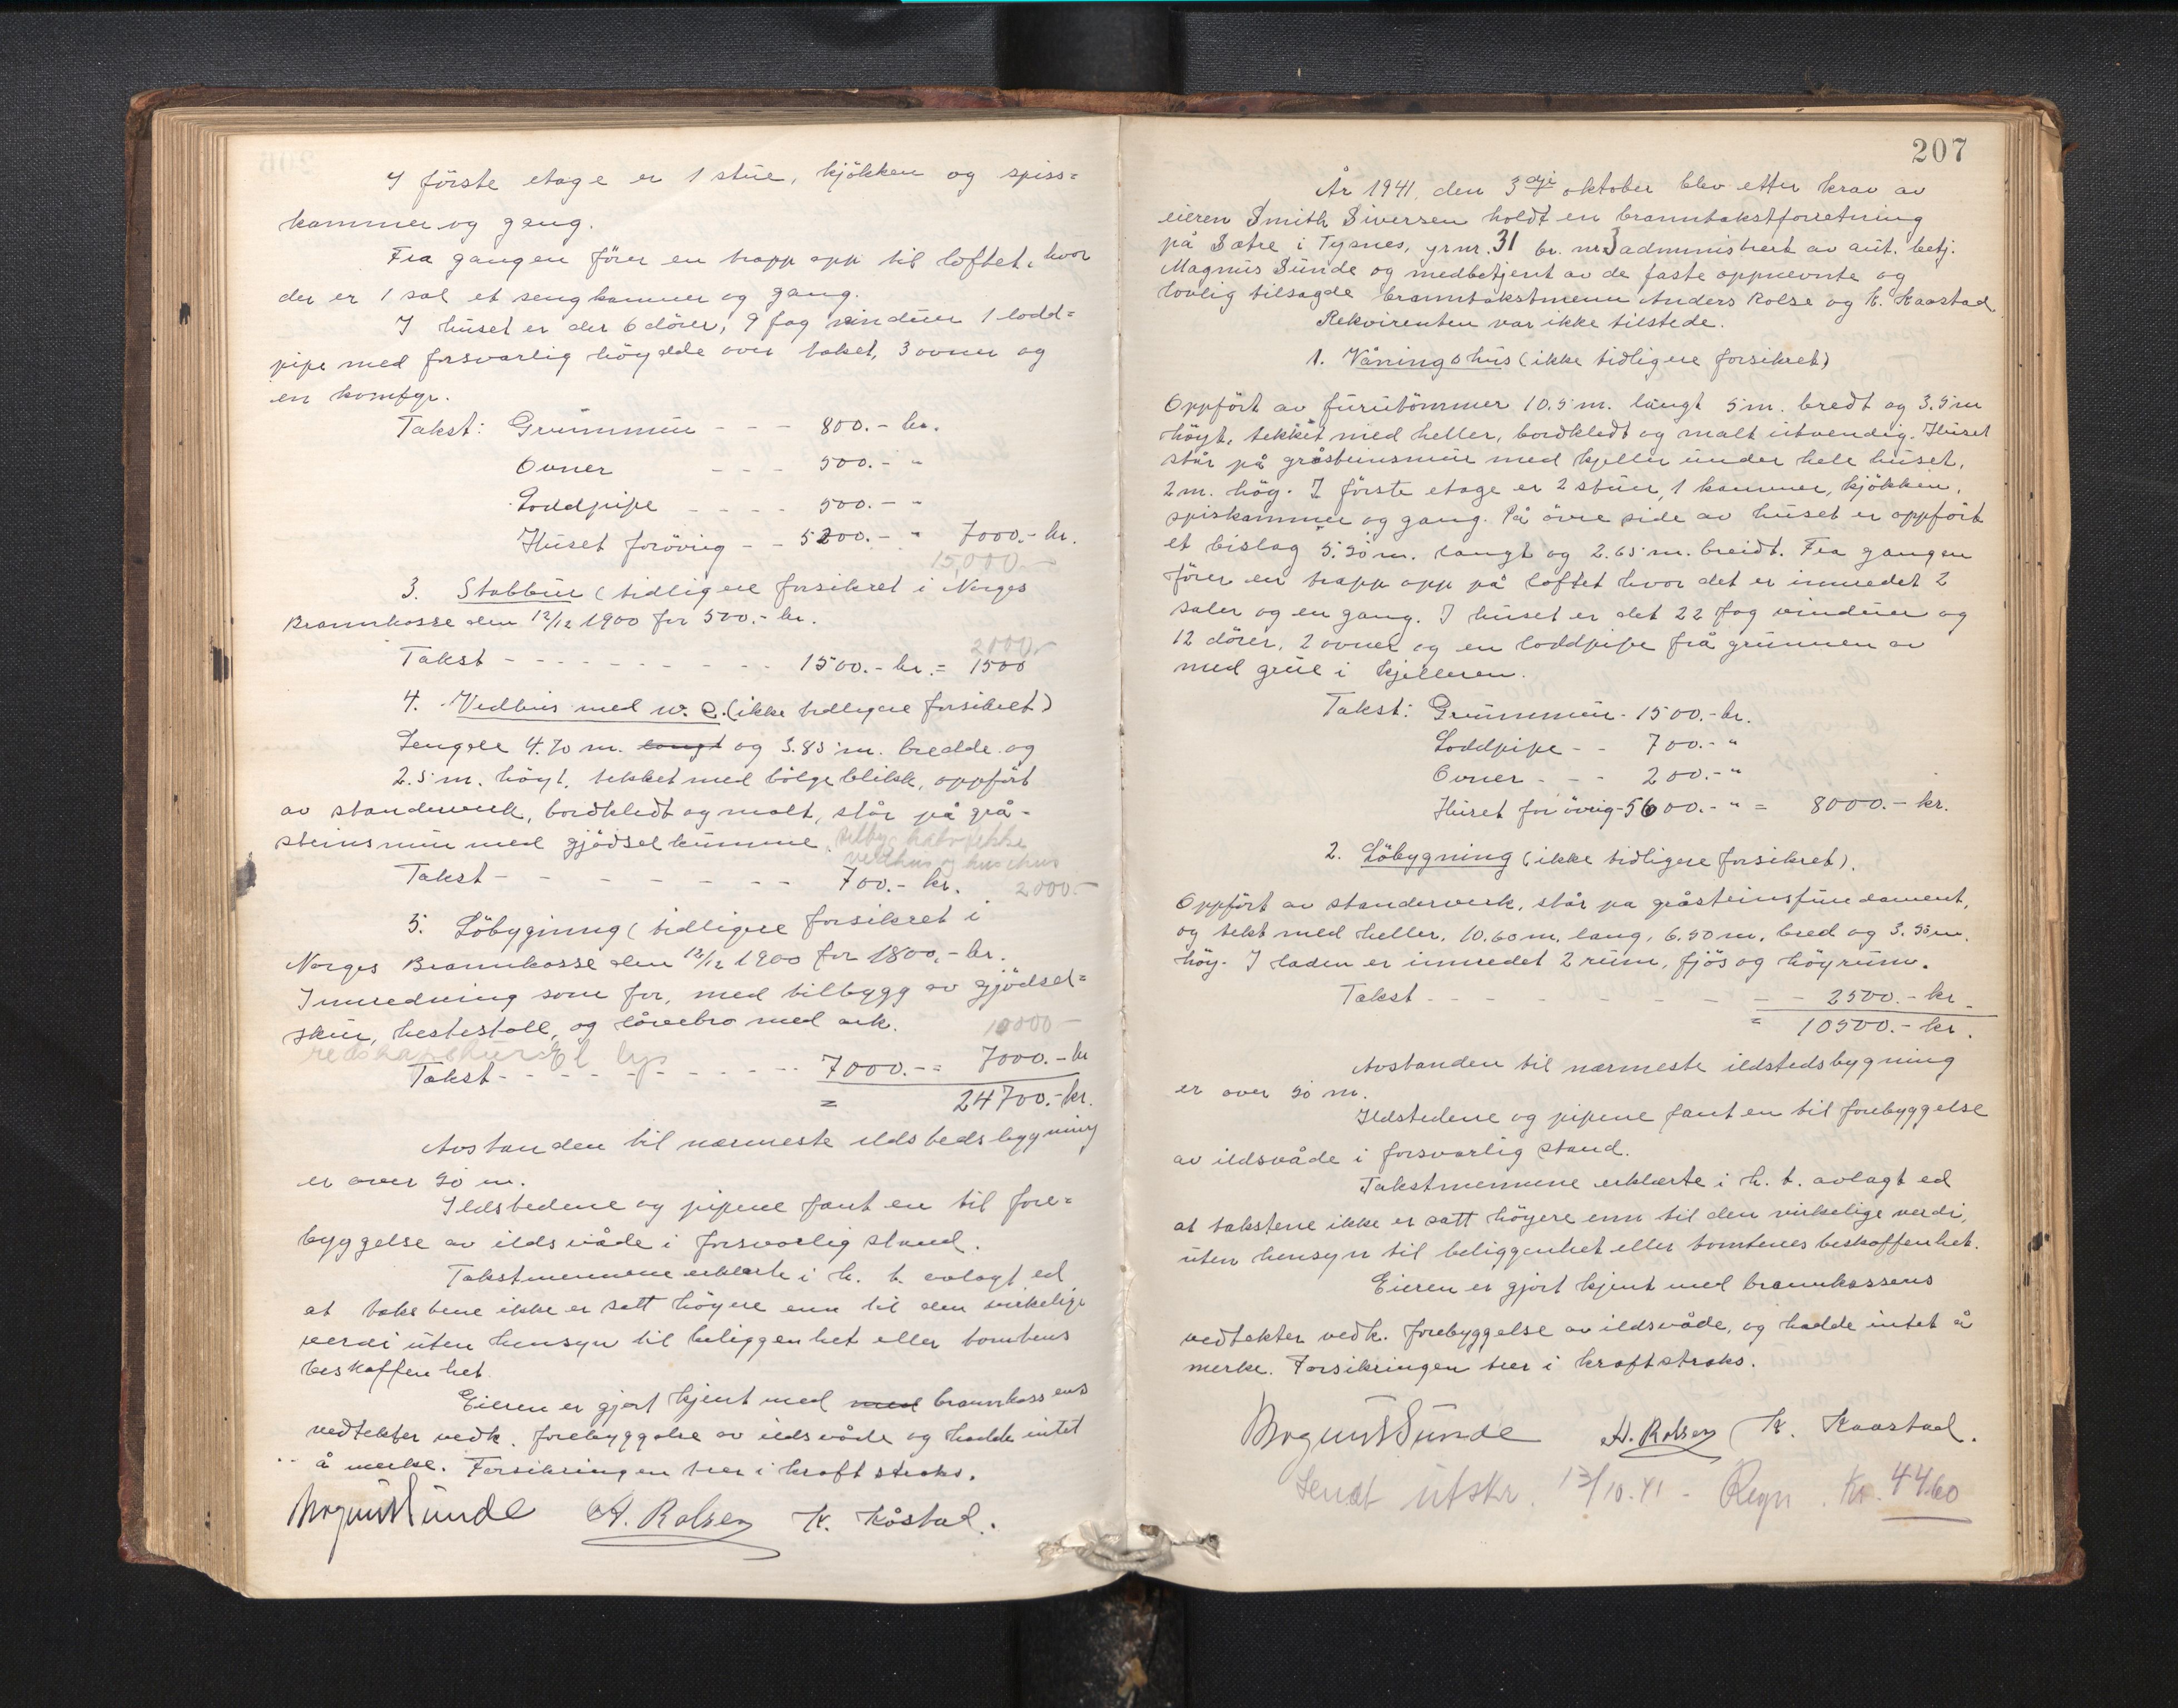 I förste etage er 1 stue, kjökken og spiss=
kammer og gang.
Fra gangen förer en trapp opp til loftet, hvor
der er 1 sal et sengkammer og gang.
I huset er der 6 dörer, 9 fag vinduer 1 lodd=
pipe med forsvarlig höyelde over taket, 3 ovner og
en komfyr.
Takst: Grunnmur - - - 800.- kr.
Ovner - - - 500.- "
Loddpipe - - - - 500.- "
Huset forövrig - - 5200.- " 7000.- kr.
15,000.-
3. Stabbur (tidligere forsikret i Norges
Brannkasse den 12/12 1900 for 500.- kr.
2000.-
Takst - - - - - - - - - - 1500.- kr. = 1500
4. Vedhus med w. c. (ikke tidligere forsikret)
Lengde 4.70 m. langt og 3.85 m. bredde og
2.5 m. höyt, tekket med bölgeblikk, oppfört
av standerverk, bordkledt og malt, står på grå-
steinsmur med gjödselkumme.
vedhus og
Takst - - - - - - - - 700.- kr. 2000.-
5. Löbygning (tidligere forsikret i
Norges Brannkasse den 12/12 1900 for 1800,- kr.
Innredning som för, med tilbygg av gjödsel=
skur, hestestall, og låvebro med ark.
10000-
redskapskur El. lys
Takst - - - - - - - - - - 7000.- = 7000.- kr
= 24700.- kr.
Avstanden til nærmeste ildstedsbygning
er over 50 m.
Ildstedene og pipene fant en til fore=
byggelse av ildsvåde i forsvarlig stand.
Takstmennene erklærte i h. t. avlagt ed
at takstene ikke er satt höyere enn til den virkelige
verdi uten hensyn til beliggenhet eller tomtens
beskaffenhet
Eieren er gjort kjent med med brannkassens
vedtekter vedk. forebyggelse av ildsvåde og hadde intet
å merke. Forsikringen trer i kraft straks.
Magnus Sunde A. Rolsen K. Kåstad.
207
År 1941, den 3dje oktober blev etter krav av
eieren Smith Siversen holdt en branntakstforretning
på Sætre i Tysnes, grnr. 31 br. nr. 3 administrert av aut. betj.
Magnus Sunde og medbetjent av de faste oppnevnte og
lovlig tilsagde branntakstmenn Anders Rolse og K. Kaastad
Rekvirenten var ikke tilstede.
1. Våningshus (ikke tidligere forsikret)
Oppfört av furutömmer 10.5 m. langt 5 m. bredt og 3.5 m
höyt, tekket med heller, bordkledt og malt utvendig. Huset
står på gråsteinsmur med kjeller under hele huset,
2 m. hög. I förste etage er 2 stuer, 1 kammer, kjökken,
spiskammer og gang. På övre side av huset er oppfört
et bislag 5.50 m. langt og 2.65 m. breidt. Fra gangen
förer en trapp opp på loftet hvor det er innredet 2
saler og en gang. I huset er det 22 fag vinduer og
12 dörer, 2 ovner og en loddpipe frå grunnen av
med grue i kjelleren.
Takst: Grunnmur - 1500.- kr.
Loddpipe - - 700.- "
Ovner - - - 200.- "
Huset for övrig - 5600.- " = 8000.- kr.
2. Löbygning (ikke tidligere forsikret).
Oppfört av standerverk, står på gråsteinsfundament,
og tekt med heller, 10.60 m. lang, 6.50 m. bred og 3.50 m.
höy. I laden er innredet 2 rum, fjös og höyrum.
Takst - - - - - - - - - 2500.- kr.
= 10500.- kr.
Avstanden til nærmeste ildstedsbygning
er over 50 m.
Ildstedene og pipene fant en til forebyggelse
av ildsvåde i forsvarlig stand.
Takstmennene erklærte i h. t. avlagt ed
at takstene ikke er satt höyere enn til den virkelige verdi,
uten hensyn til beliggenhet eller tomtenes beskaffenhet.
Eieren er gjort kjent med brannkassens
vedtekter vedk. forebyggelse av ildsvåde, og hadde intet å
merke. Forsikringen trer i kraft straks.
Magnus Sunde A. Rolsen K. Kaastad.
Sendt utskr. 13/10.41 - Regn. Kr. 44.60